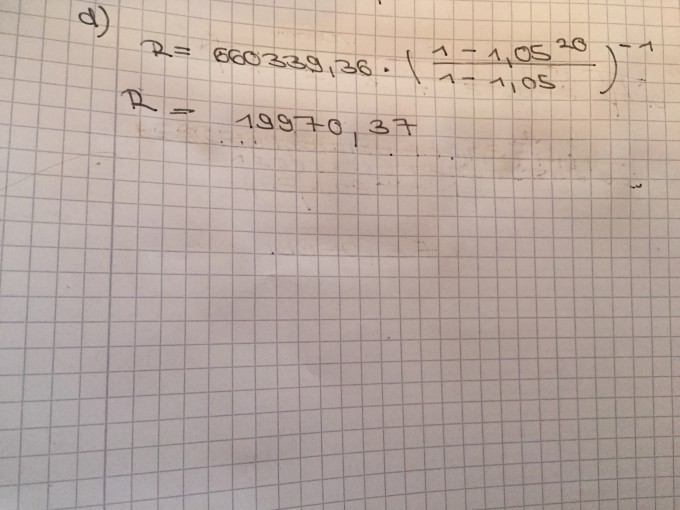 d)
R = 660339,36 · ( (1 - 1,05^20) / (1 - 1,05) )^-1
R = 19970,37